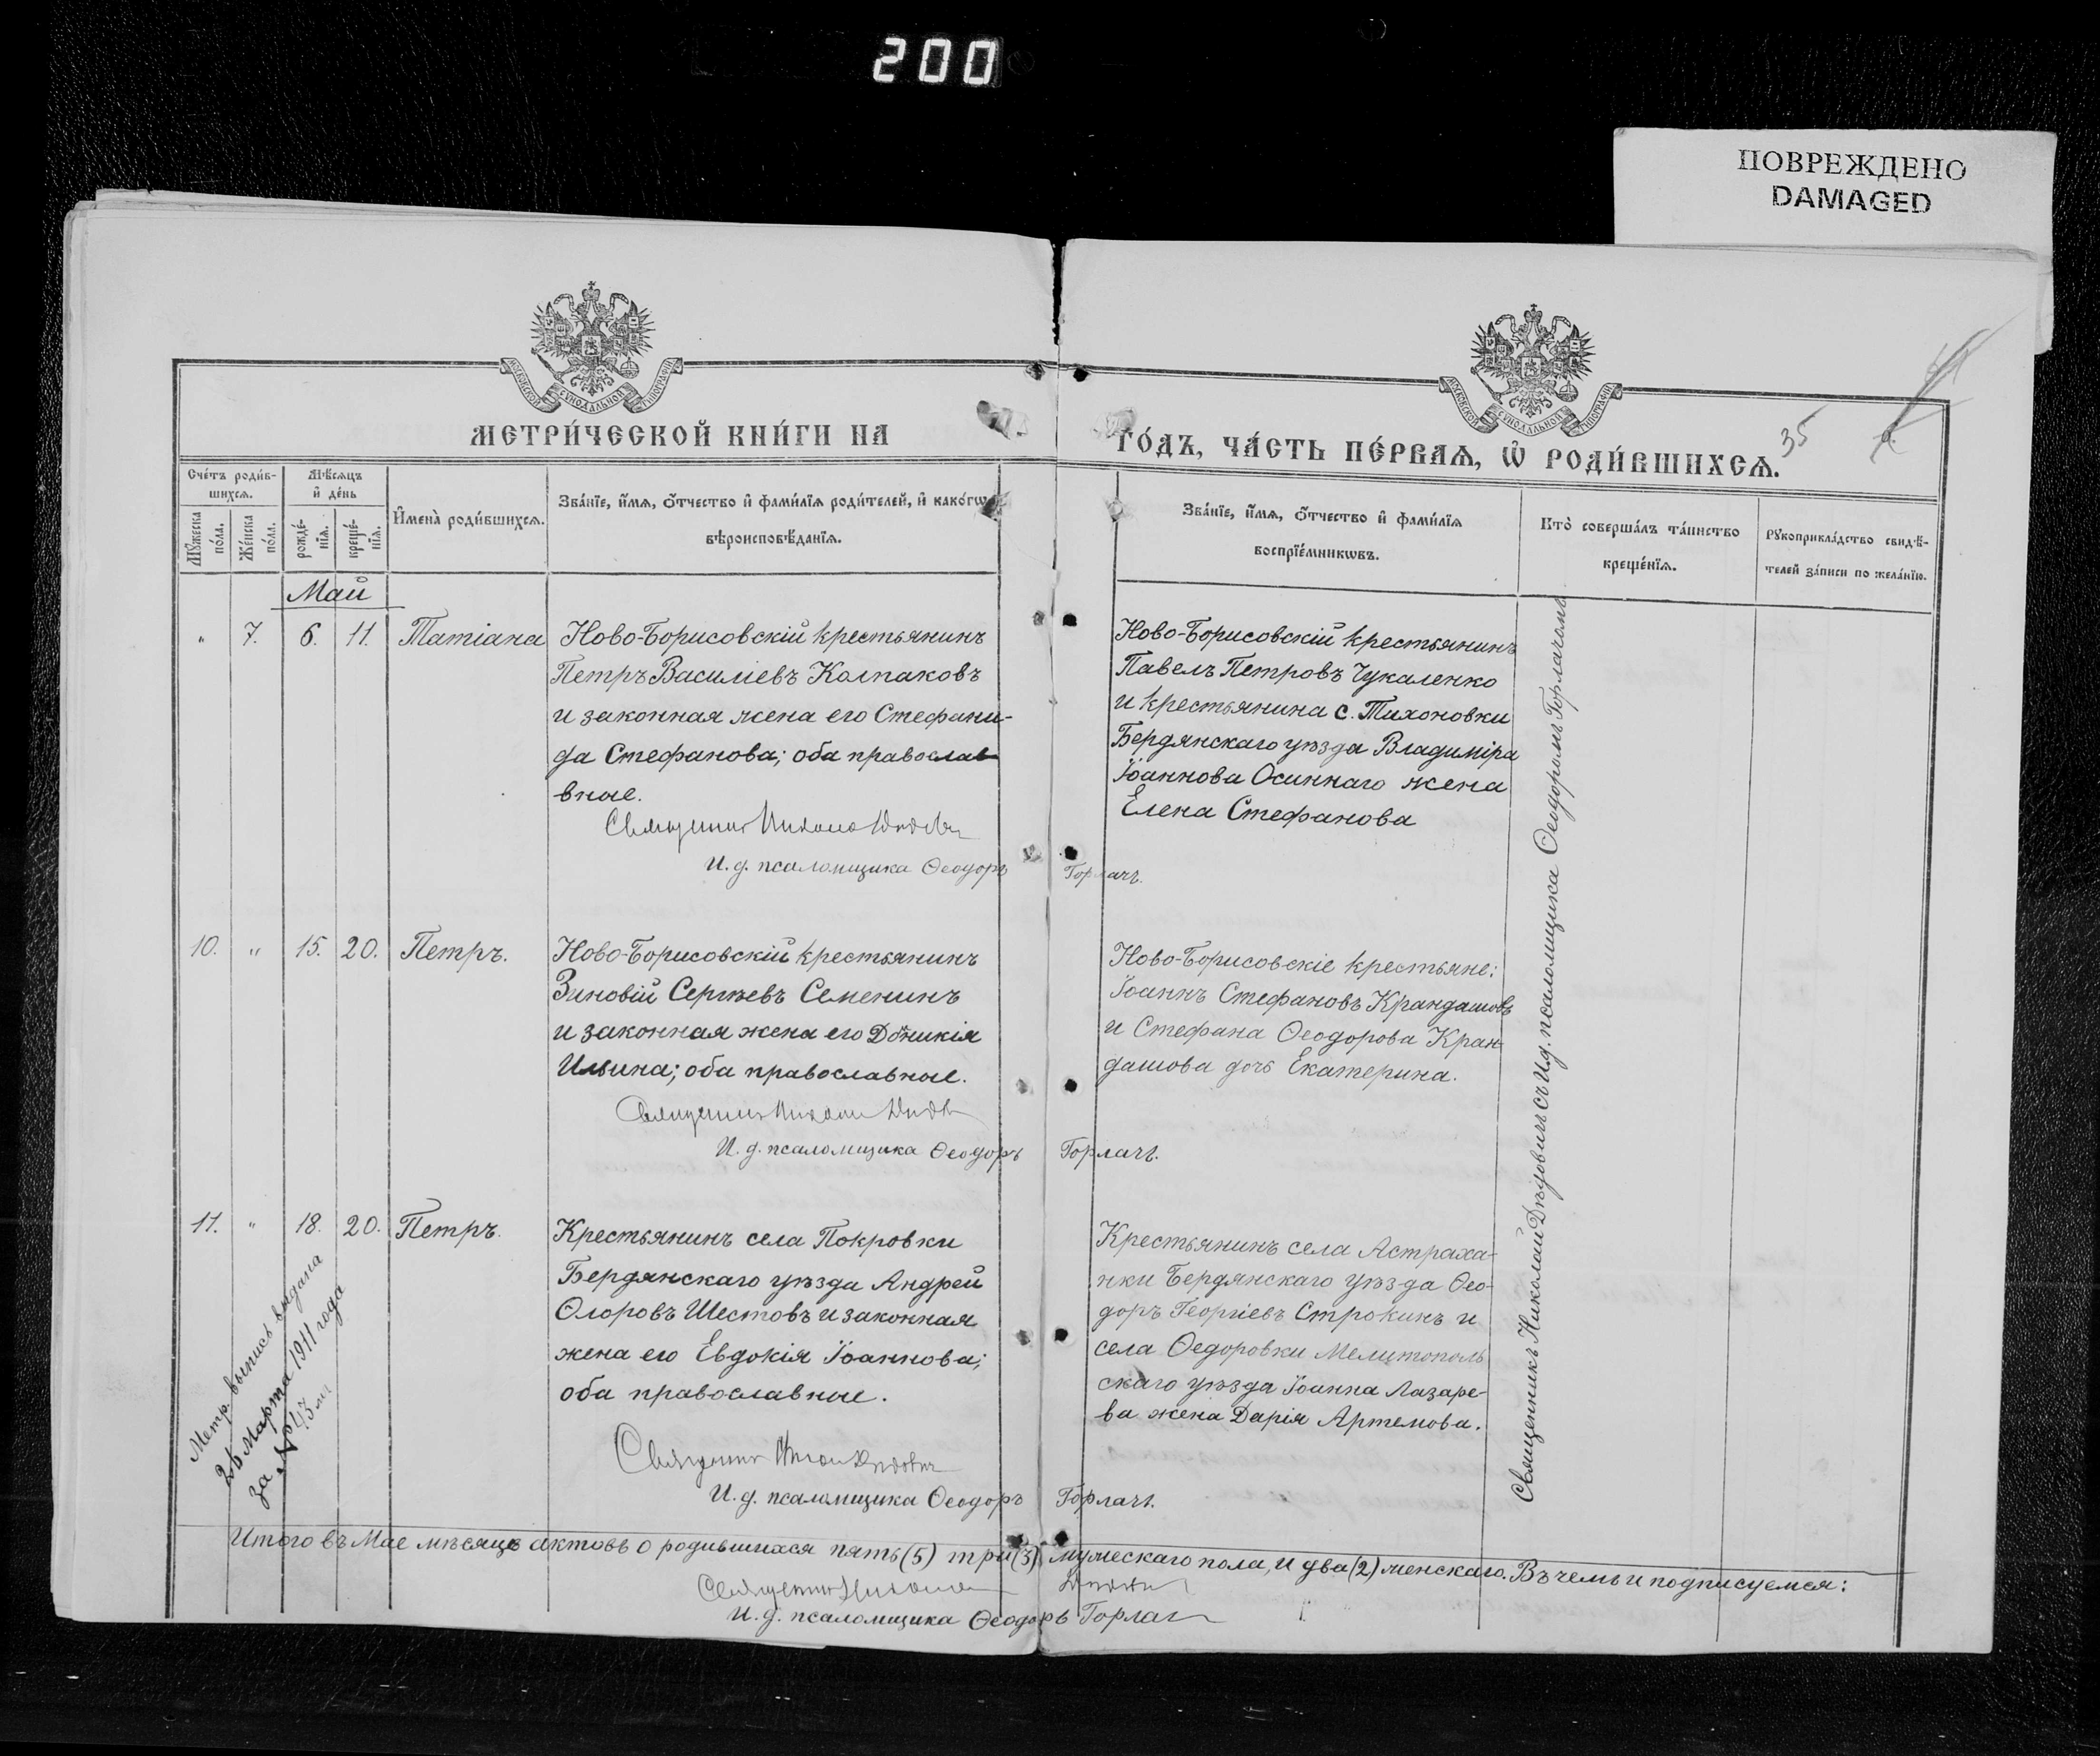 200
ПОВРЕЖДЕНО
DAMAGED
МОСКОВСКОЙ СѴНОДАЛЬНОЙ ТИПОГРАФІИ
МОСКОВСКОЙ СѴНОДАЛЬНОЙ ТИПОГРАФІИ
35
МЕТРИ́ЧЕСКОЙ КНИ́ГИ НА
ГО́ДЪ, ЧА́СТЬ ПЕ́РВАЯ, Ѡ РОДИ́ВШИХСЯ.
Сче́тъ роди́в-
шихся.
Мѣ́сяцъ
и де́нь
Мꙋ́жеска
по́ла.
Же́нска
по́ла.
рожде́-
нїя.
креще́-
нїя.
Имена̀ роди́вшихся.
Зва́нїе, и́мя, о́тчество и фами́лїя роди́телей, и како́гѡ
вѣроисповѣ́данїя.
Зва́нїе, и́мя, о́тчество и фами́лїя
воспрїе́мникѡвъ.
Кто̀ соверша́лъ та́инство
креще́нїя.
Рꙋкоприкла́дство свидѣ́-
телей за́писи по жела́нїю.
Май
" 7. 6. 11. Татіана
Ново-Борисовскій крестьянинъ
Петръ Василіевъ Колпаковъ
и законная жена его Стефани-
да Стефанова; оба православ
вные.
Священникъ Николай
И. д. псаломщика Ѳеодоръ Горлачъ.
Ново-Борисовскій крестьянинъ
Павелъ Петровъ Чукаленко
и крестьянина с. Тихоновки
Бердянскаго уѣзда Владиміра
Іоаннова Осиннаго жена
Елена Стефанова
Священникъ Николай Дѣдовичъ съ И.д. псаломщика Ѳеодоромъ Горлачомъ
10. " 15. 20. Петръ.
Ново-Борисовскій крестьянинъ
Зиновій Сергѣевъ Семенинъ
и законная жена его Домникія
Ильина; оба православные.
Священникъ Николай
И. д. псаломщика Ѳеодоръ Горлачъ.
Ново-Борисовскіе крестьяне:
Іоаннъ Стефановъ Крандашовъ
и Стефана Ѳеодорова Кран-
дашова дочь Екатерина.
11. " 18. 20. Петръ.
Крестьянинъ села Покровки
Бердянскаго уѣзда Андрей
Ѳлоровъ Шестовъ и законная
жена его Евдокія Іоаннова;
оба православные.
Священникъ Николай Дѣдовичъ
И. д. псаломщика Ѳеодоръ Горлачъ.
Крестьянинъ села Астраха-
нки Бердянскаго уѣзда Ѳео-
доръ Георгіевъ Строкинъ и
села Ѳедоровки Мелитополь
скаго уѣзда Іоанна Лазаре-
ва жена Дарія Артемова.
Метр. выпись выдана
26 Марта 1911 года
за №
Итого въ Мае мѣсяцѣ актовъ о родившихся пять (5) три (3) мужескаго пола, и два (2) женскаго. Въ чемъ и подписуемся:
Священникъ Николай
И. д. псаломщика Ѳеодоръ Горлач